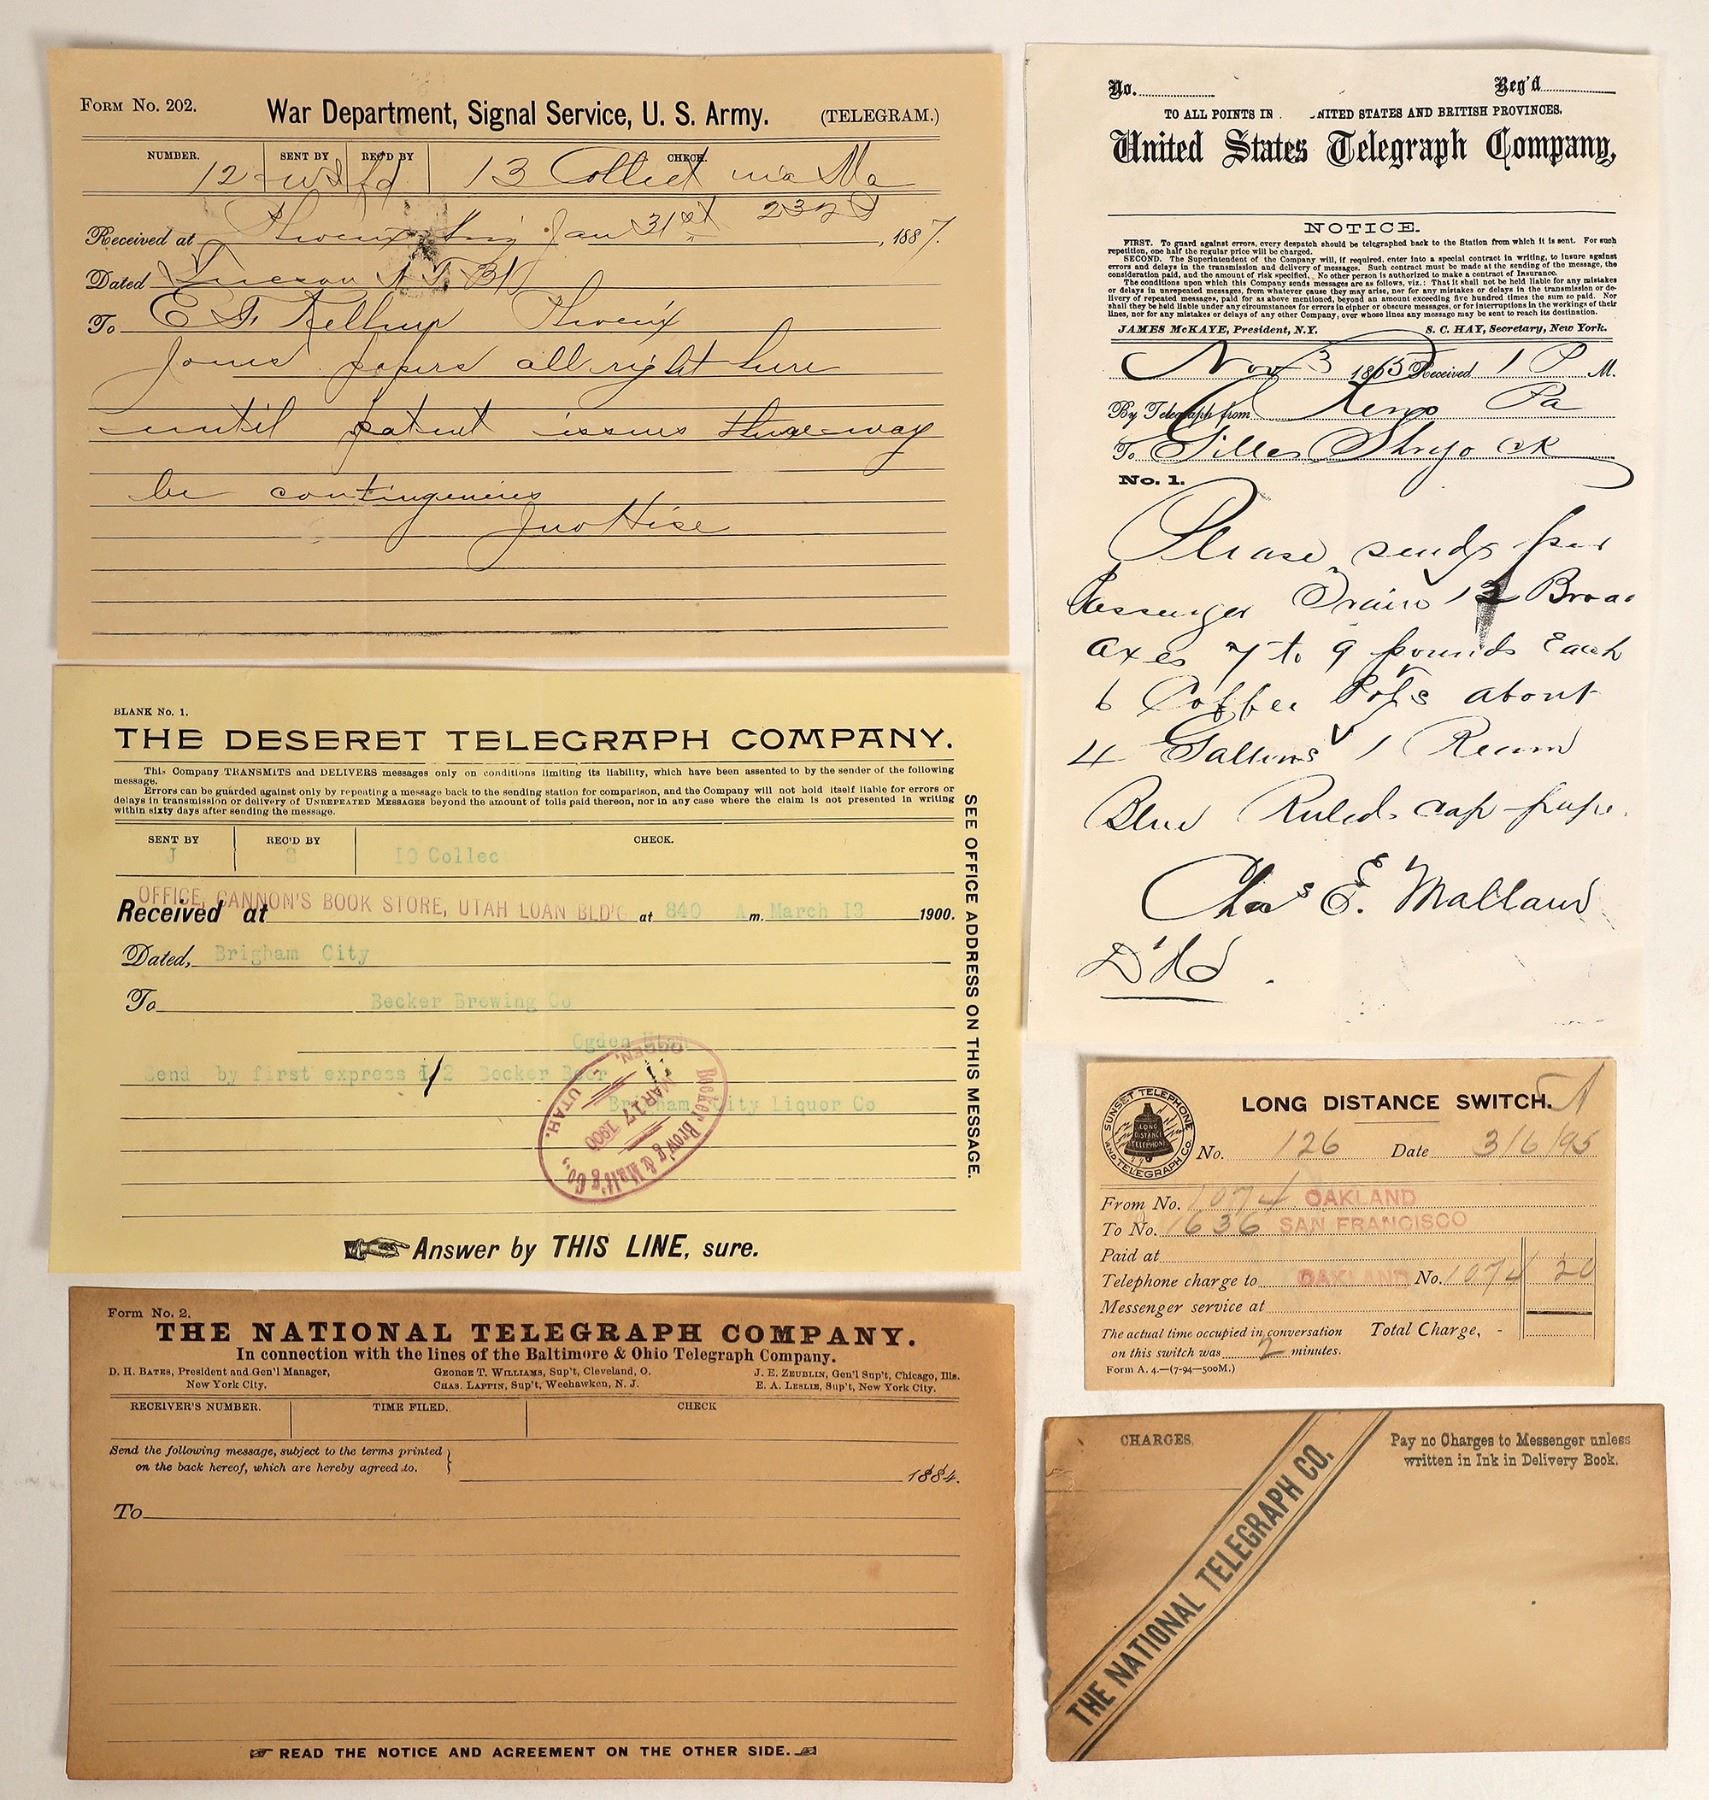 FORM No. 202. War Department, Signal Service, U. S. Army. (TELEGRAM.)
NUMBER. SENT BY REC'D BY CHECK.
12 13 Collect via Ma
Received at Phoenix Ariz Jan 31st 1887.
Dated Tucson A T 31
To E F Kellner Phoenix
Jones papers all right here
until patent issues there may
be contingencies
Jno Hise
No. Rec'd
TO ALL POINTS IN NITED STATES AND BRITISH PROVINCES.
United States Telegraph Company,
NOTICE.
FIRST. To guard against errors, every despatch should be telegraphed back to the Station from which it is sent. For such
repetition, one half the regular price will be charged.
SECOND. The Superintendent of the Company will, if required, enter into a special contract in writing, to insure against
errors and delays in the transmission and delivery of messages. Such contract must be made at the sending of the message, the
consideration paid, and the amount of risk specified. No other person is authorized to make a contract of Insurance.
The conditions upon which this Company sends messages are as follows, viz.: That it shall not be held liable for any mistakes
or delays in unrepeated messages, from whatever cause they may arise, nor for any mistakes or delays in the transmission or de-
livery of repeated messages, paid for as above mentioned, beyond an amount exceeding five hundred times the sum so paid. Nor
shall they be held liable under any circumstances for errors in cipher or obscure messages, or for interruptions in the workings of their
lines, nor for any mistakes or delays of any other Company, over whose lines any message may be sent to reach its destination.
JAMES McKAYE, President, N.Y. S. C. HAY, Secretary, New York.
Nov 3 1865 Received 1 P M.
By Telegraph from Reno Pa
To Gilles Shryock
No. 1.
Please send per
Passenger Train 12 Broad
axes 7 to 9 pounds Each
6 Coffee Pots about
4 Gallons 1 Ream
Blue Ruled cap pape.
Chas E. Malland
D'Hd.
BLANK No. 1.
THE DESERET TELEGRAPH COMPANY.
This Company TRANSMITS and DELIVERS messages only on conditions limiting its liability, which have been assented to by the sender of the following
message.
Errors can be guarded against only by repeating a message back to the sending station for comparison, and the Company will not hold itself liable for errors or
delays in transmission or delivery of UNREPEATED MESSAGES beyond the amount of tolls paid thereon, nor in any case where the claim is not presented in writing
within sixty days after sending the message.
SENT BY REC'D BY CHECK.
J S 10 Collec
OFFICE, CANNON'S BOOK STORE, UTAH LOAN BLD'G
Received at at 840 A m. March 13 1900.
Dated, Brigham City
To Becker Brewing Co
Ogden Utah
Send by first express 1/2 Becker Beer
Brigham City Liquor Co
Becker Brew'g & Malt'g Co.
MAR 17 1900
OGDEN, UTAH.
SEE OFFICE ADDRESS ON THIS MESSAGE.
Answer by THIS LINE, sure.
SUNSET TELEPHONE AND TELEGRAPH CO
LONG DISTANCE TELEPHONE
LONG DISTANCE SWITCH.
No. 126 Date 3/6/95
From No. 1074 OAKLAND
To No. 1636 SAN FRANCISCO
Paid at
Telephone charge to OAKLAND No. 1074 20
Messenger service at
The actual time occupied in conversation Total Charge, -
on this switch was 2 minutes.
Form A. 4.—(7-94—500M.)
Form No. 2.
THE NATIONAL TELEGRAPH COMPANY.
In connection with the lines of the Baltimore & Ohio Telegraph Company.
D. H. BATES, President and Gen'l Manager, GEORGE T. WILLIAMS, Sup't, Cleveland, O. J. E. ZEUBLIN, Gen'l Sup't, Chicago, Ills.
New York City. CHAS. LAPPIN, Sup't, Weehawken, N. J. E. A. LESLIE, Sup't, New York City.
RECEIVER'S NUMBER. TIME FILED. CHECK
Send the following message, subject to the terms printed
on the back hereof, which are hereby agreed to.
1884.
To
READ THE NOTICE AND AGREEMENT ON THE OTHER SIDE.
CHARGES, Pay no Charges to Messenger unless
written in Ink in Delivery Book.
THE NATIONAL TELEGRAPH CO.